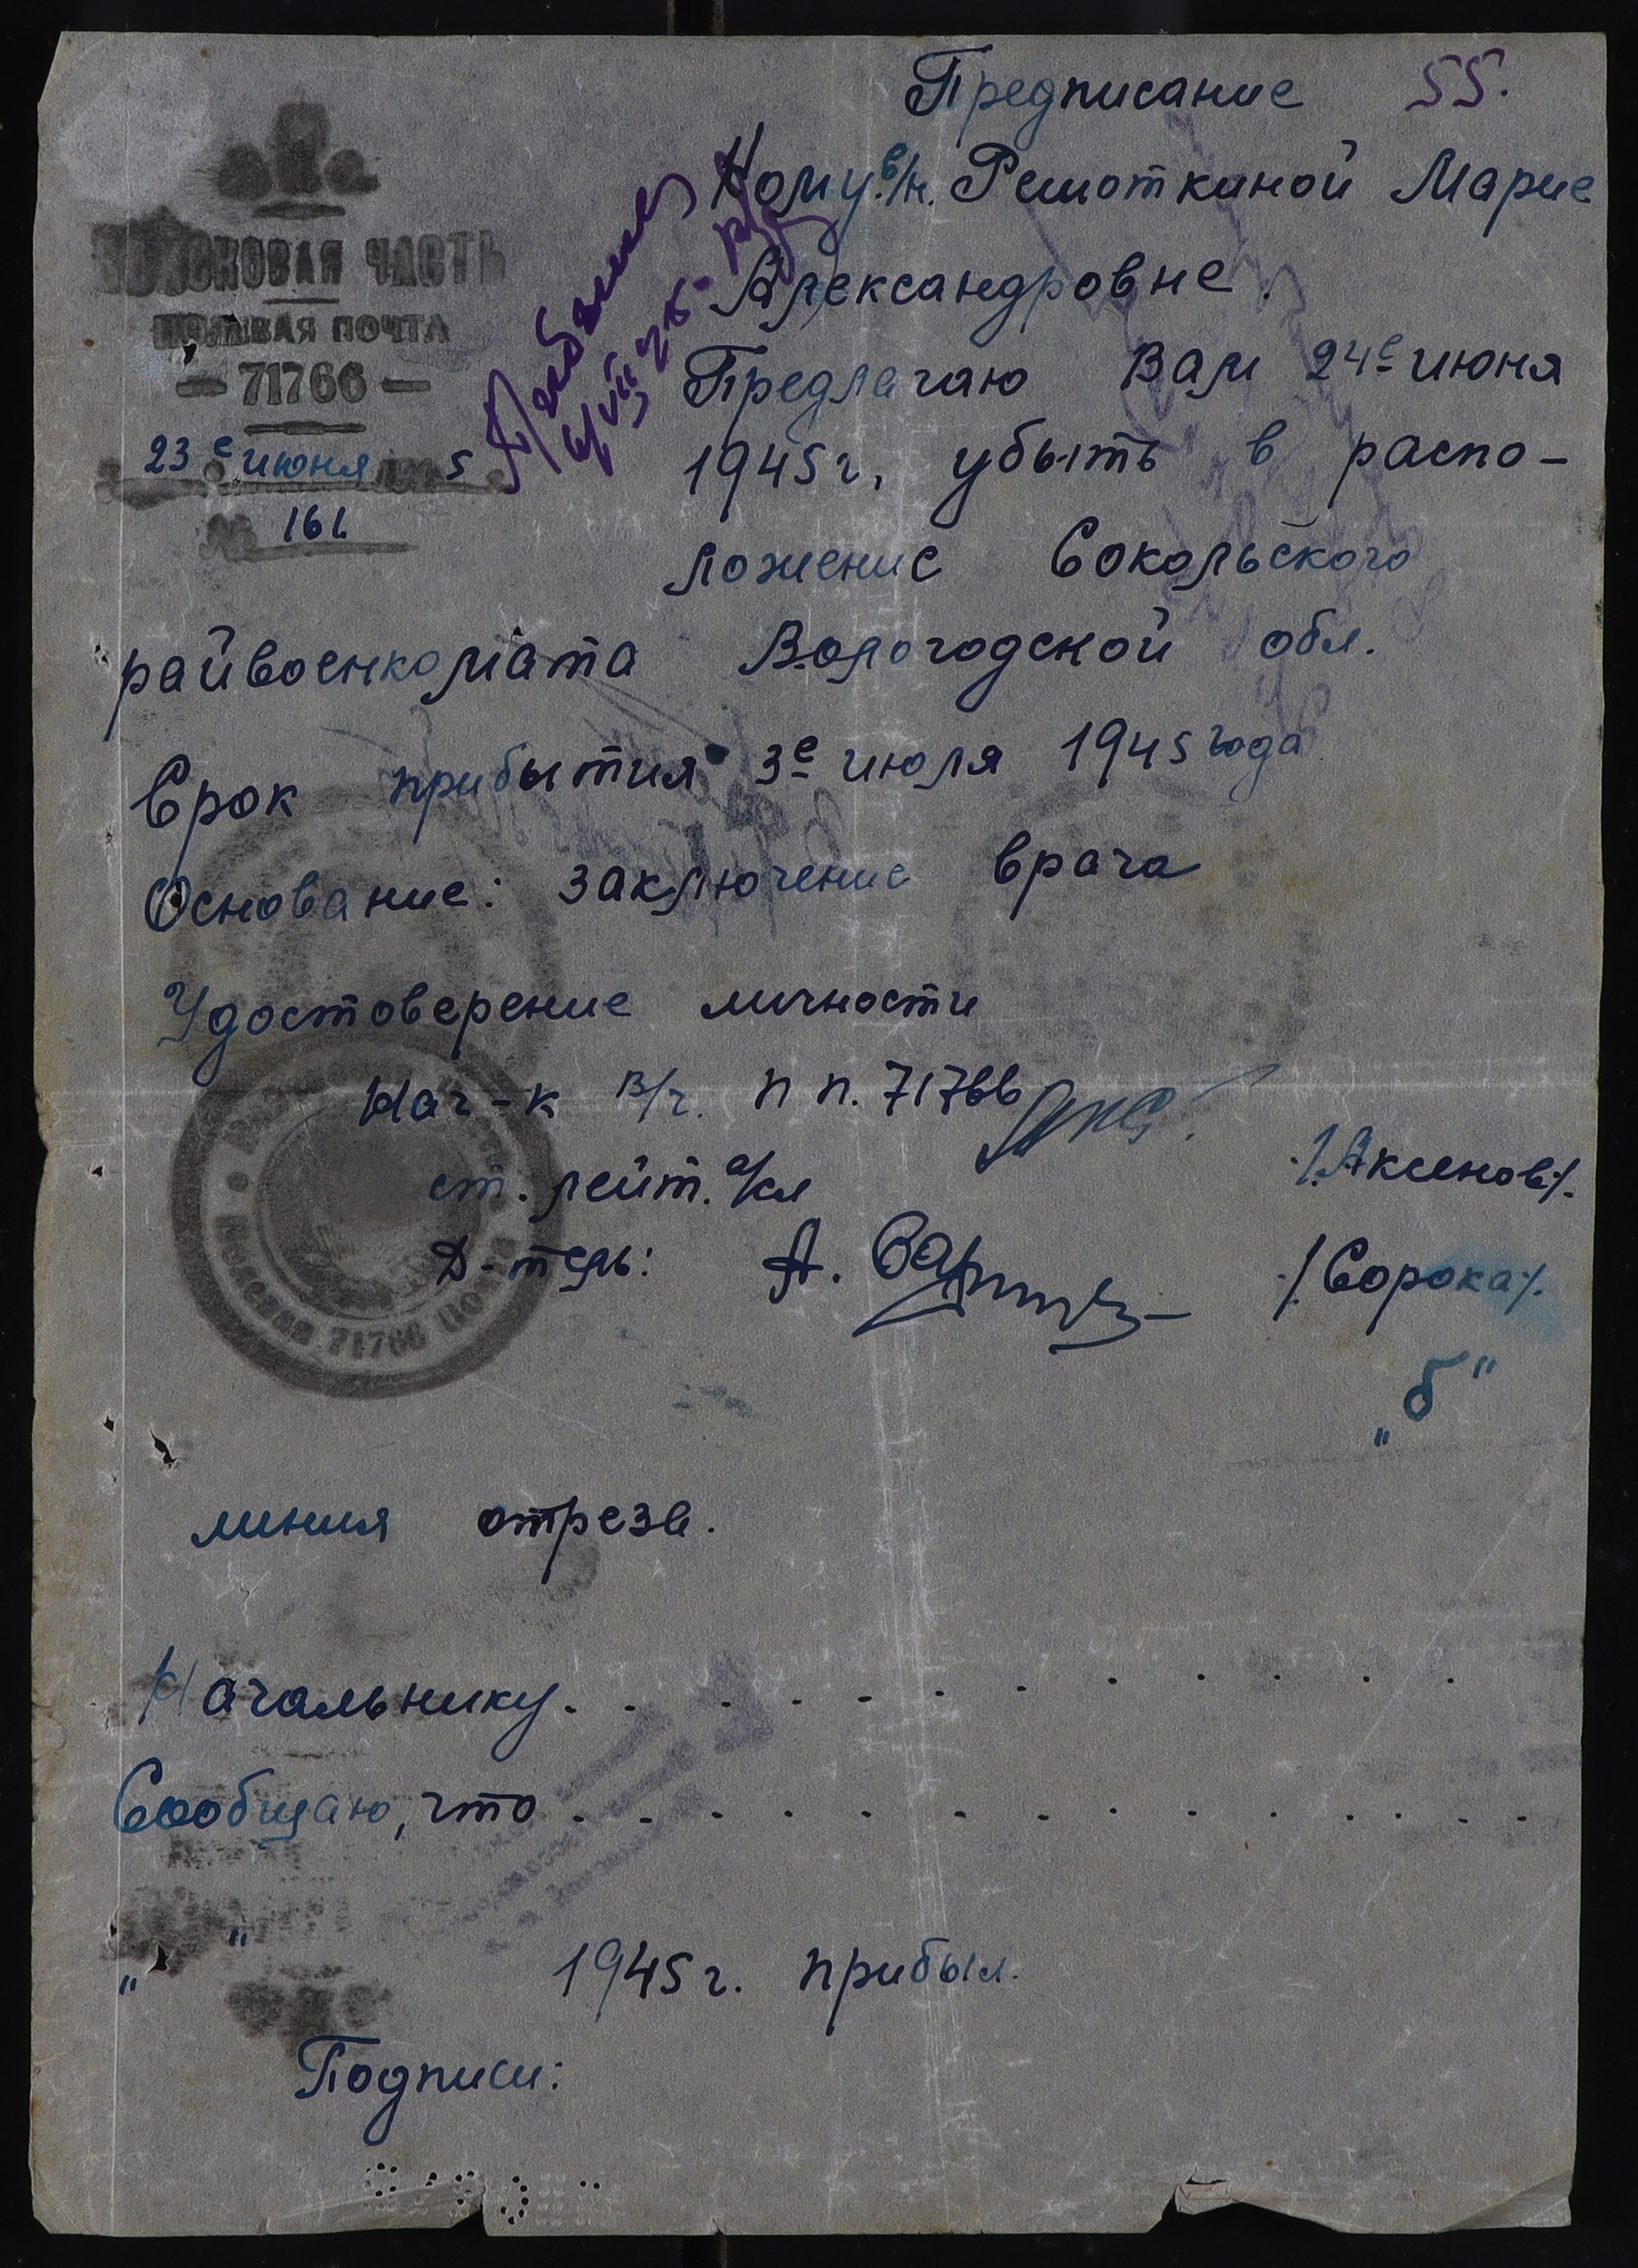 Предписание 55.
Кому в/н. Решоткиной Марие
Александровне.
ВОЙСКОВАЯ ЧАСТЬ
ПОЛЕВАЯ ПОЧТА
— 71766 —
23е июня 5
№ 161
6/VII 45
Предлагаю Вам 24е июня
1945 г. убыть в распо-
ложение Сокольского
райвоенкомата Вологодской обл.
Срок прибытия 3е июля 1945 года
Основание: заключение врача
Удостоверение личности
Нач-к в/ч. п п. 71766
ст. лейт. а/сл ./Аксенов/.
Д-тель: ./Сорока/.
Полевая 71766 Почта
„б"
линия отреза.
Начальнику. . . . . . . . . . . .
Сообщаю, что . . . . . . . . . . . . .
„ " 1945 г. прибыл.
Подписи: